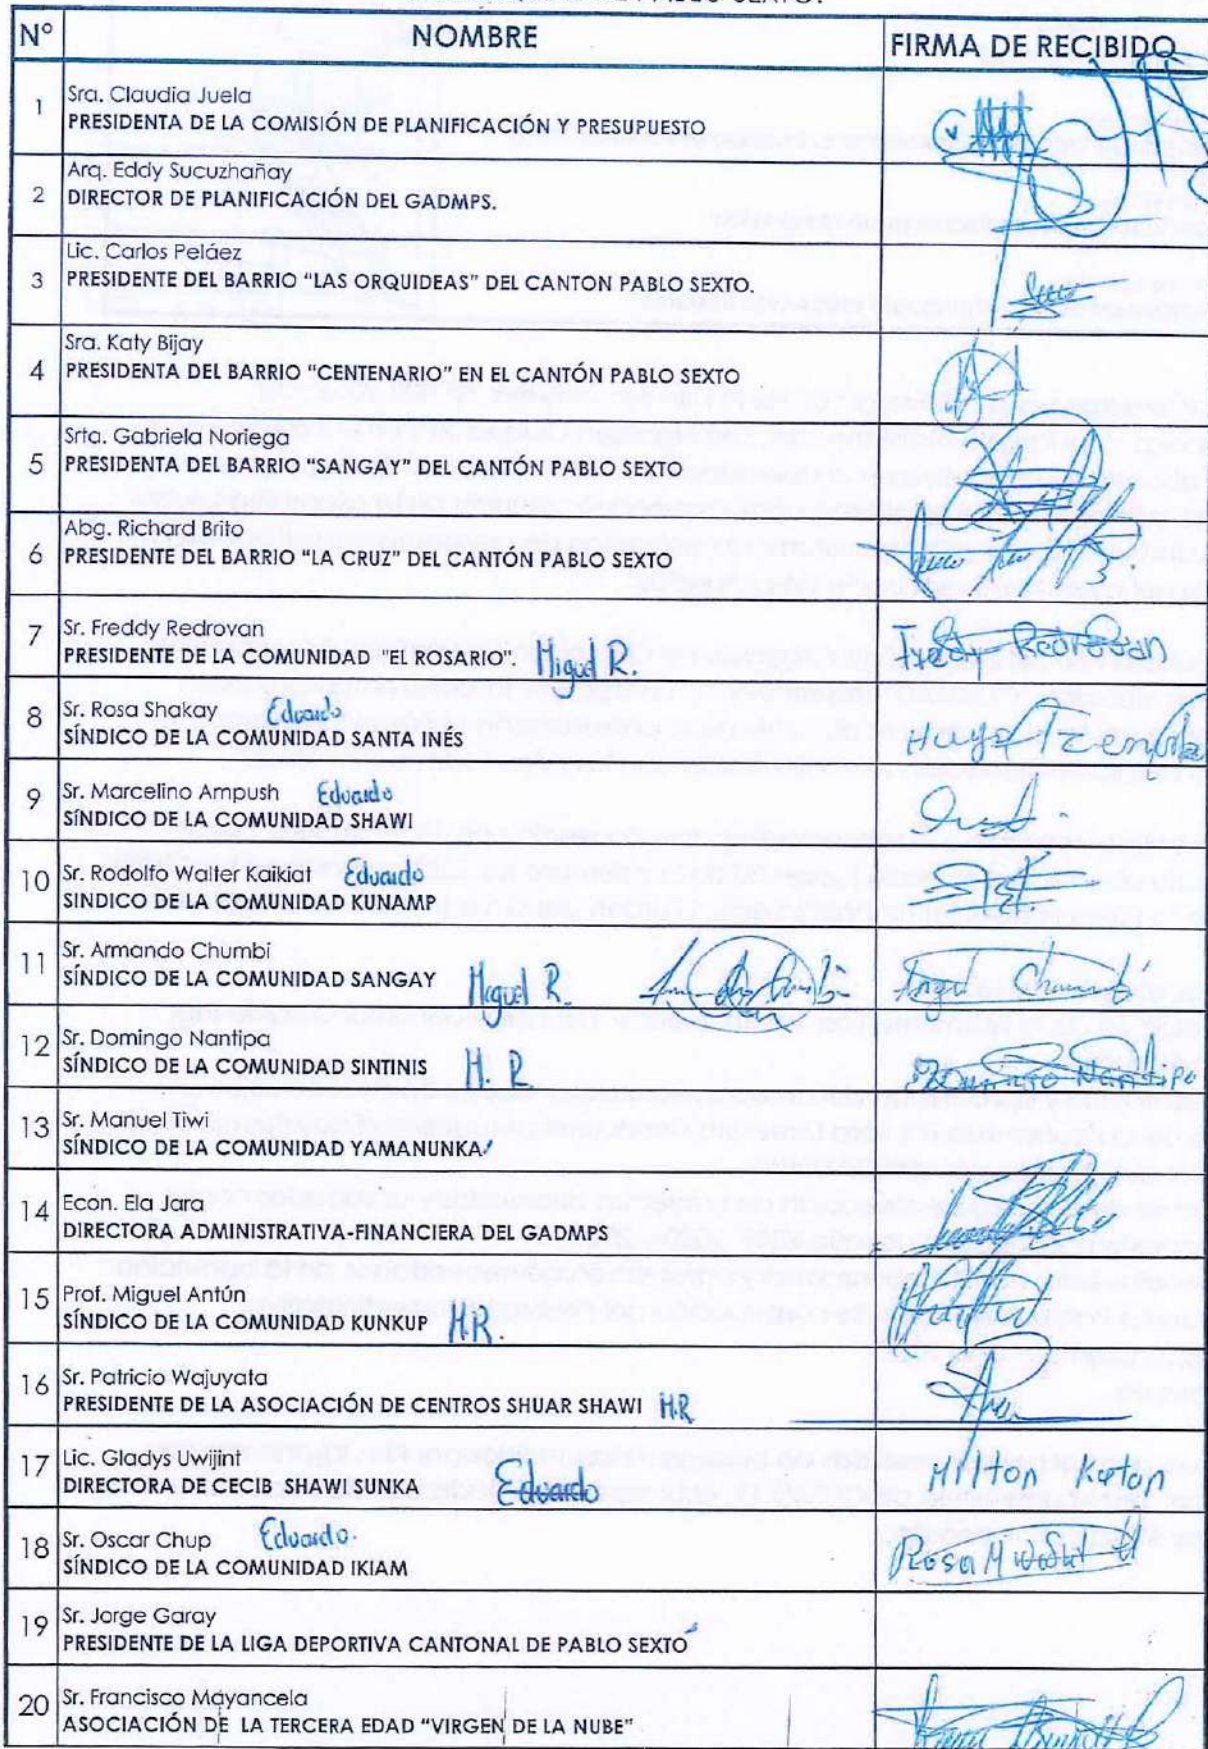 N° NOMBRE FIRMA DE RECIBIDO
1 Sra. Claudia Juela
PRESIDENTA DE LA COMISIÓN DE PLANIFICACIÓN Y PRESUPUESTO
2 Arq. Eddy Sucuzhañay
DIRECTOR DE PLANIFICACIÓN DEL GADMPS.
3 Lic. Carlos Peláez
PRESIDENTE DEL BARRIO "LAS ORQUIDEAS" DEL CANTON PABLO SEXTO.
4 Sra. Katy Bijay
PRESIDENTA DEL BARRIO "CENTENARIO" EN EL CANTÓN PABLO SEXTO
5 Srta. Gabriela Noriega
PRESIDENTA DEL BARRIO "SANGAY" DEL CANTÓN PABLO SEXTO
6 Abg. Richard Brito
PRESIDENTE DEL BARRIO "LA CRUZ" DEL CANTÓN PABLO SEXTO
7 Sr. Freddy Redrovan
PRESIDENTE DE LA COMUNIDAD "EL ROSARIO". Miguel R.
8 Sr. Rosa Shakay Eduardo
SÍNDICO DE LA COMUNIDAD SANTA INÉS
9 Sr. Marcelino Ampush Eduardo
SÍNDICO DE LA COMUNIDAD SHAWI
10 Sr. Rodolfo Walter Kaikiat Eduardo
SINDICO DE LA COMUNIDAD KUNAMP
11 Sr. Armando Chumbi
SÍNDICO DE LA COMUNIDAD SANGAY Miguel R.
12 Sr. Domingo Nantipa
SÍNDICO DE LA COMUNIDAD SINTINIS H. R Domingo Nantipa
13 Sr. Manuel Tiwi
SÍNDICO DE LA COMUNIDAD YAMANUNKA
14 Econ. Ela Jara
DIRECTORA ADMINISTRATIVA-FINANCIERA DEL GADMPS
15 Prof. Miguel Antún
SÍNDICO DE LA COMUNIDAD KUNKUP H.R.
16 Sr. Patricio Wajuyata
PRESIDENTE DE LA ASOCIACIÓN DE CENTROS SHUAR SHAWI H.R
17 Lic. Gladys Uwijint
DIRECTORA DE CECIB SHAWI SUNKA Eduardo
18 Sr. Oscar Chup Eduardo.
SÍNDICO DE LA COMUNIDAD IKIAM Rosa
19 Sr. Jorge Garay
PRESIDENTE DE LA LIGA DEPORTIVA CANTONAL DE PABLO SEXTO
20 Sr. Francisco Mayancela
ASOCIACIÓN DE LA TERCERA EDAD "VIRGEN DE LA NUBE"